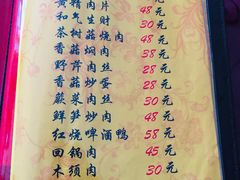 黄精肉片 48元
和气生财 30元
茶树菇烧肉 48元
香菇焖肉 38元
野芹肉丝 28元
香菇炒蛋 28元
蕨菜肉丝 30元
鲜笋炒肉 48元
红烧啤酒鸭 58元
回锅肉 45元
木须肉 30元